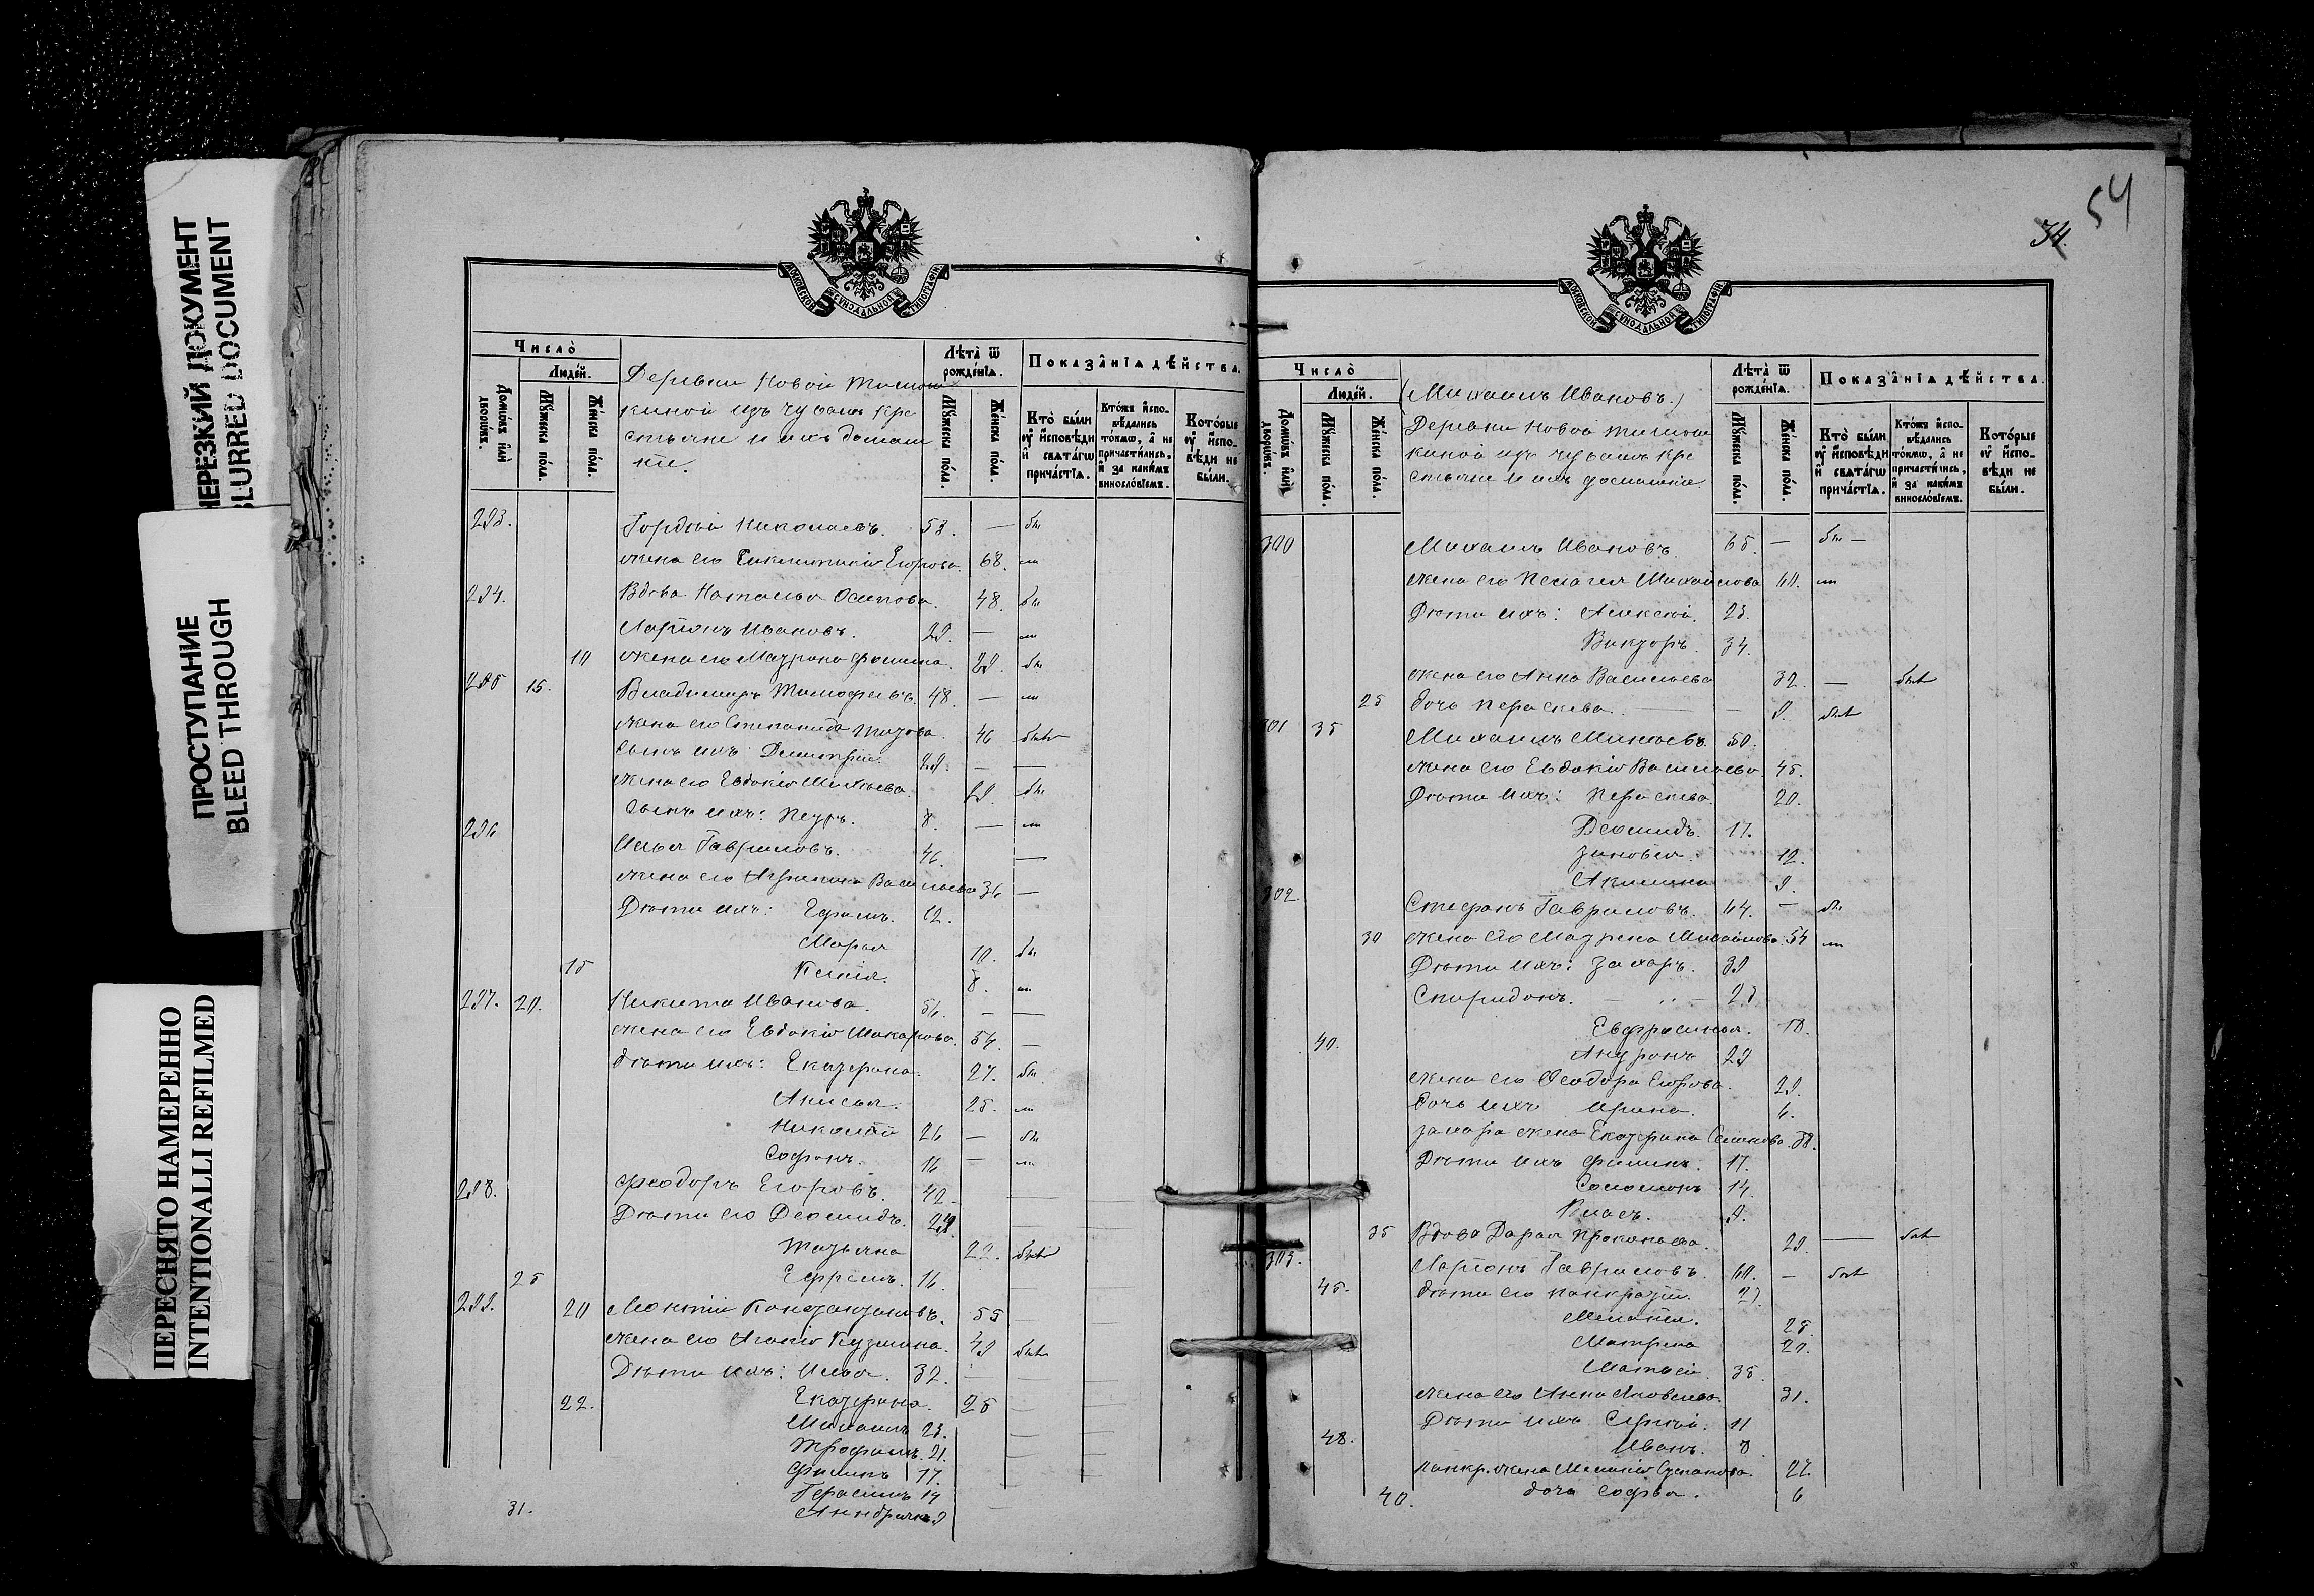 ЧЕРЕЗКИЙ ДОКУМЕНТ
BLURRED DOCUMENT
ПРОСТУПАНИЕ
BLEED THROUGH
ПЕРЕСНЯТО НАМЕРЕННО
INTENTIONALLI REFILMED
МОСКОВСКОЙ СУНОДАЛЬНОЙ ТИПОГРАФІИ
Число̀
Людей.
Домѡвъ или дворѡвъ.
Мꙋжеска пола.
Женска пола.
Деревни Новой Тимош
киной изъ чувашъ кре
стьяне и ихъ домаш
ніе.
Лѣта̀ ѿ рожденїѧ.
Мꙋжеска пола.
Женска пола.
Показанїѧ дѣйства.
Кто̀ были оу исповѣди и свѧтагѡ причастїѧ.
Ктожъ исповѣдались токмѡ, а не причастились, и за какимъ винословїемъ.
Которые оу исповѣди не были.
293. Гордѣй Николаевъ. 53. — бы
жена его Егорова. 68.
294. Вдова Наталья Осипова. 48. бы
Ларіонъ Ивановъ. 29. —
10 жена его Матрона Фомина. 29. бы
295 15. Владимиръ Тимофеевъ. 48. —
жена его Степанида Титова. 46 быт
сынъ ихъ Димитрій. 29. — —
жена его Евдокія Михеева. 29. бы
сынъ ихъ: Петръ. 8. —
296 Илья Гавриловъ. 46. —
жена его Агрипина Васильева 36 —
Дѣти ихъ: Ефимъ. 12.
Марья 10. бы
15 Ксенія. 8.
297. 20. Никита Иванова. 56. — —
жена его Евдокія Макарова. 54. —
дѣти ихъ: Екатерина. 27. бы
Анисья. 25.
Николай 26 — бы
Софронъ. 16 —
298. Феодоръ Егоровъ. 42.
Дѣти его Деомидъ. 29.
Татьяна 22. быт
25 Ефремъ. 16.
299. 20 Константиновъ. 55
жена его Агафія Кузмина. 49 быт
Дѣти ихъ: Илья. 32.
22. Екатерина. 25
Михаилъ 23.
Трофимъ. 21.
Филипъ 17.
Герасимъ 14
31.
54
34.
МОСКОВСКОЙ СУНОДАЛЬНОЙ ТИПОГРАФІИ
Число̀
Людей.
Домѡвъ или дворѡвъ.
Мꙋжеска пола.
Женска пола.
(Михаилъ Ивановъ.)
Деревни Новой Тимош
киной изъ чувашъ кре
стьяне и ихъ домашніе.
Лѣта̀ ѿ рожденїѧ.
Мꙋжеска пола.
Женска пола.
Показанїѧ дѣйства.
Кто̀ были оу исповѣди и свѧтагѡ причастїѧ.
Ктожъ исповѣдались токмѡ, а не причастились, и за какимъ винословїемъ.
Которые оу исповѣди не были.
300 Михаилъ Ивановъ. 65. — бы —
жена его Пелагея Михайлова 60.
Дѣти ихъ: Алексѣй. 23.
Викторъ. 34.
жена его Анна Васильева 32. — быт
25 дочь Параскева. — — 9. быт
301 35 Михаилъ Михеевъ. 50.
жена его Евдокія Васильева 45.
Дѣти ихъ: Параскева. 20.
Деомидъ. 17.
Зиновья. 12.
Акилина 9.
302 Стефанъ Гавриловъ. 64. — бы
30 жена его Матрена Михайлова. 54
Дѣти ихъ: Захаръ. 39
Спиридонъ. — — 23
Евфросинья. 18.
40. Андронъ 29
жена его Феодора Егорова. 29.
дочь ихъ Ирина. 6.
Захара жена Екатерина Семенова. 38.
Дѣти ихъ Филипъ. 17.
Соломонъ 14.
Власъ. 9.
35 Вдова Дарья Прокопьева. 29. — быт
303. Ларіонъ Гавриловъ. 60. — быт
45. дѣти его Панкратій. 27.
Меланія. 25.
Матрена 20.
Матвѣй. 35.
жена его Анна Яковлева. 31.
Дѣти ихъ Сергѣй. 11
48. Иванъ. 8.
панкр. жена Меланія Степанова. 27.
40. дочь Софья. 6